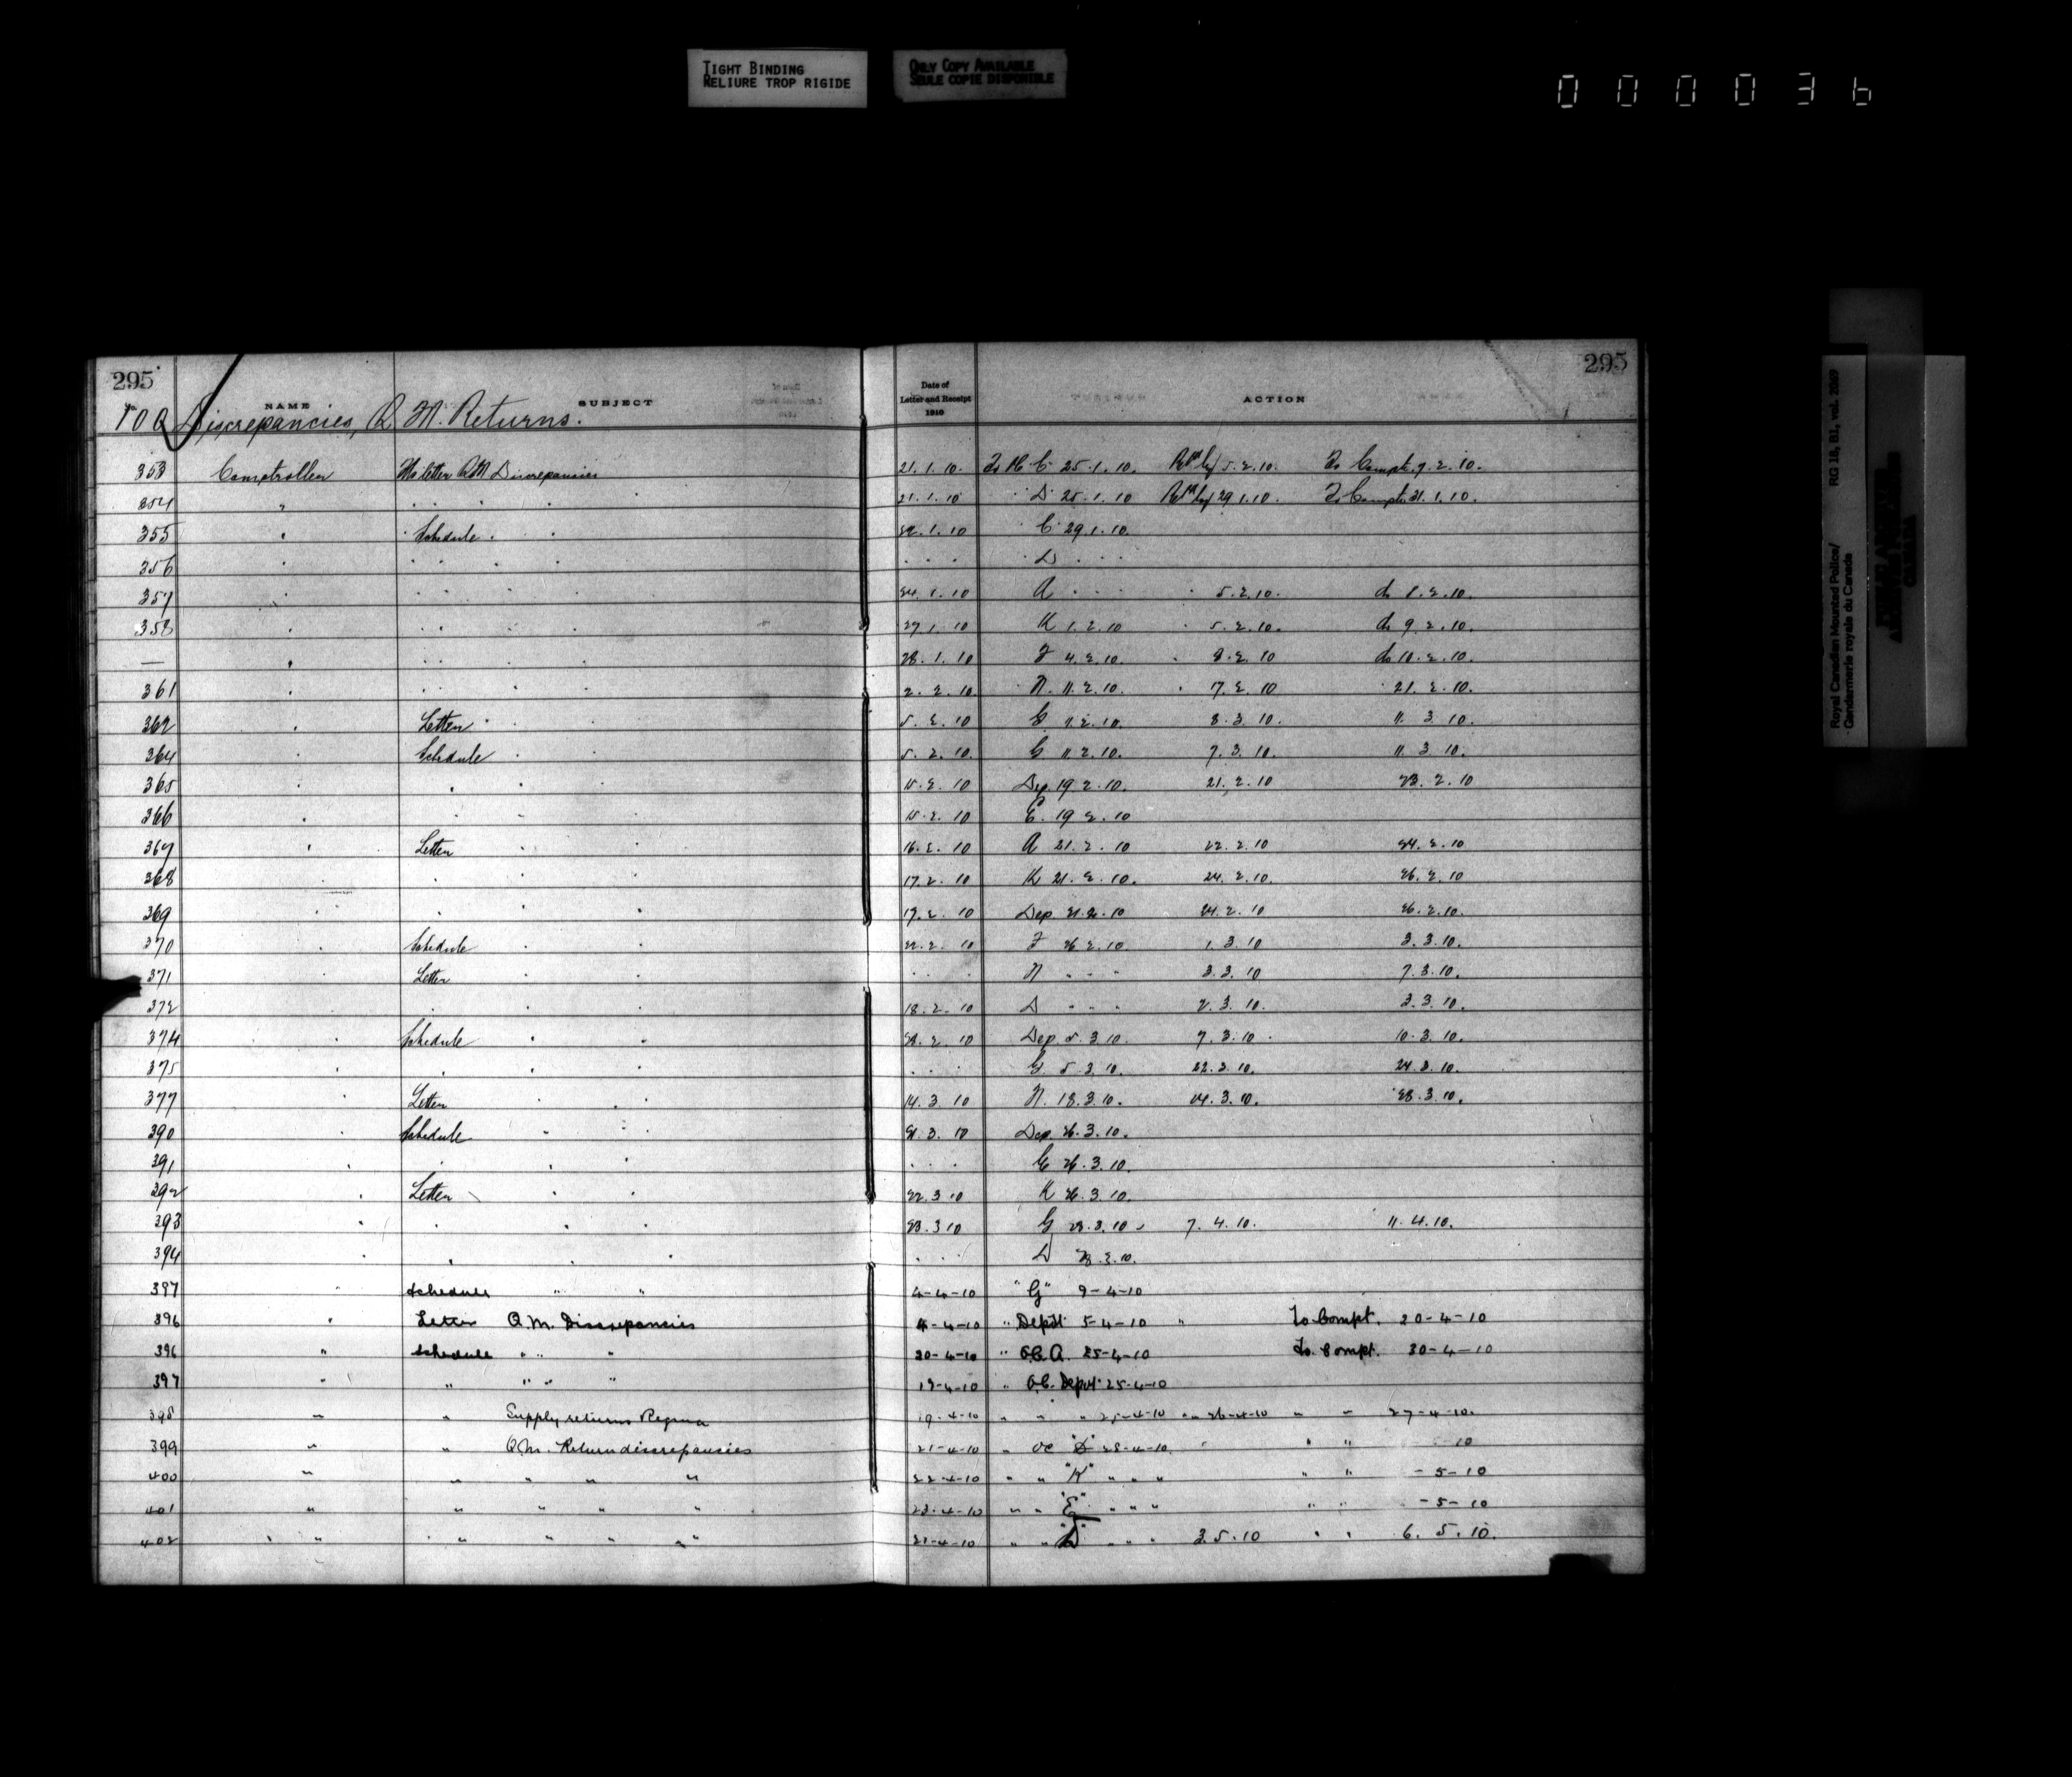 TIGHT BINDING
RELIURE TROP RIGIDE
ONLY COPY AVAILABLE
SEULE COPIE DISPONIBLE
000036
Royal Canadian Mounted Police/ RG 18, B1, vol. 2069
Gendarmerie royale du Canada
295 295
NAME SUBJECT Date of Letter and Receipt 1910 ACTION
No 100 Discrepancies, Q. M. Returns.
353 Comptroller His letter QM Discrepancies 21.1.10. 25.1.10. 5.2.10. To Compt. 9.2.10.
354 " . . . . 21.1.10 D 25.1.10 29.1.10. To Compt. 31.1.10.
355 " Schedule . . 22.1.10 C 29.1.10.
356 " . . . . . . . D . . .
357 " . . . . 24.1.10 A . . . 5.2.10. do 8.2.10.
358 " . . . . 27.1.10 K 1.2.10 5.2.10. do 9.2.10.
— " . . . . 28.1.10 F 4.2.10. 8.2.10 do 10.2.10.
361 " . . . . 2.2.10 N. 11.2.10. 17.2.10 21.2.10.
362 " Letter . . 5.2.10 G 8.3.10. 11.3.10.
364 " Schedule . . 5.2.10. G 11.2.10. 7.3.10. 11.3.10.
365 " " . . 15.2.10 Dep. 19.2.10. 21.2.10 23.2.10
366 " " . . 15.2.10 E. 19.2.10
367 " Letter . . 16.2.10 A 21.2.10 22.2.10 24.2.10
368 " " . . 17.2.10 K 21.2.10. 24.2.10. 26.2.10
369 " " . . 17.2.10 Dep. 21.2.10 24.2.10 26.2.10.
370 " Schedule . . 22.2.10 F 26.2.10. 1.3.10 3.3.10.
371 " Letter . . . . . N . . . 3.3.10 7.3.10.
372 " " . . 18.2.10 D . . . 2.3.10. 3.3.10.
374 " Schedule . . 28.2.10 Dep. 5.3.10. 7.3.10. 10.3.10.
375 " " . . . . . G 5.3.10. 22.3.10. 24.3.10.
377 " Letter . . 14.3.10 N. 18.3.10. 24.3.10. 28.3.10.
390 " Schedule . . 21.3.10 Dep. 26.3.10.
391 " " . . . . . 26.3.10.
392 " Letter . . 22.3.10 K 26.3.10.
393 " " . . 23.3.10 G 7.4.10. 11.4.10.
394 " " . . . . . D
397 " Schedule " " 4-4-10 " "G" 9-4-10
396 " Letter Q.M. Discrepancies 4-4-10 " Depôt 5-4-10 " To Compt. 20-4-10
396 " Schedule " " " 20-4-10 " O.C. A. 25-4-10 To Compt. 30-4-10
397 " " " " " 19-4-10 " O.C. Depot 25-4-10
398 " " Supply returns Regina 19-4-10 " " " 25-4-10 " " 26-4-10 " " 27-4-10.
399 " " Q.M. Return discrepancies 21-4-10 " OC "D" 28-4-10. " " " -10
400 " " " " " 22-4-10 " " "K" " " " " " -5-10
401 " " " " " 23-4-10 " " "E" " " " " " -5-10
402 " " " " " 21-4-10 " " " " " 3.5.10 " " 6.5.10.